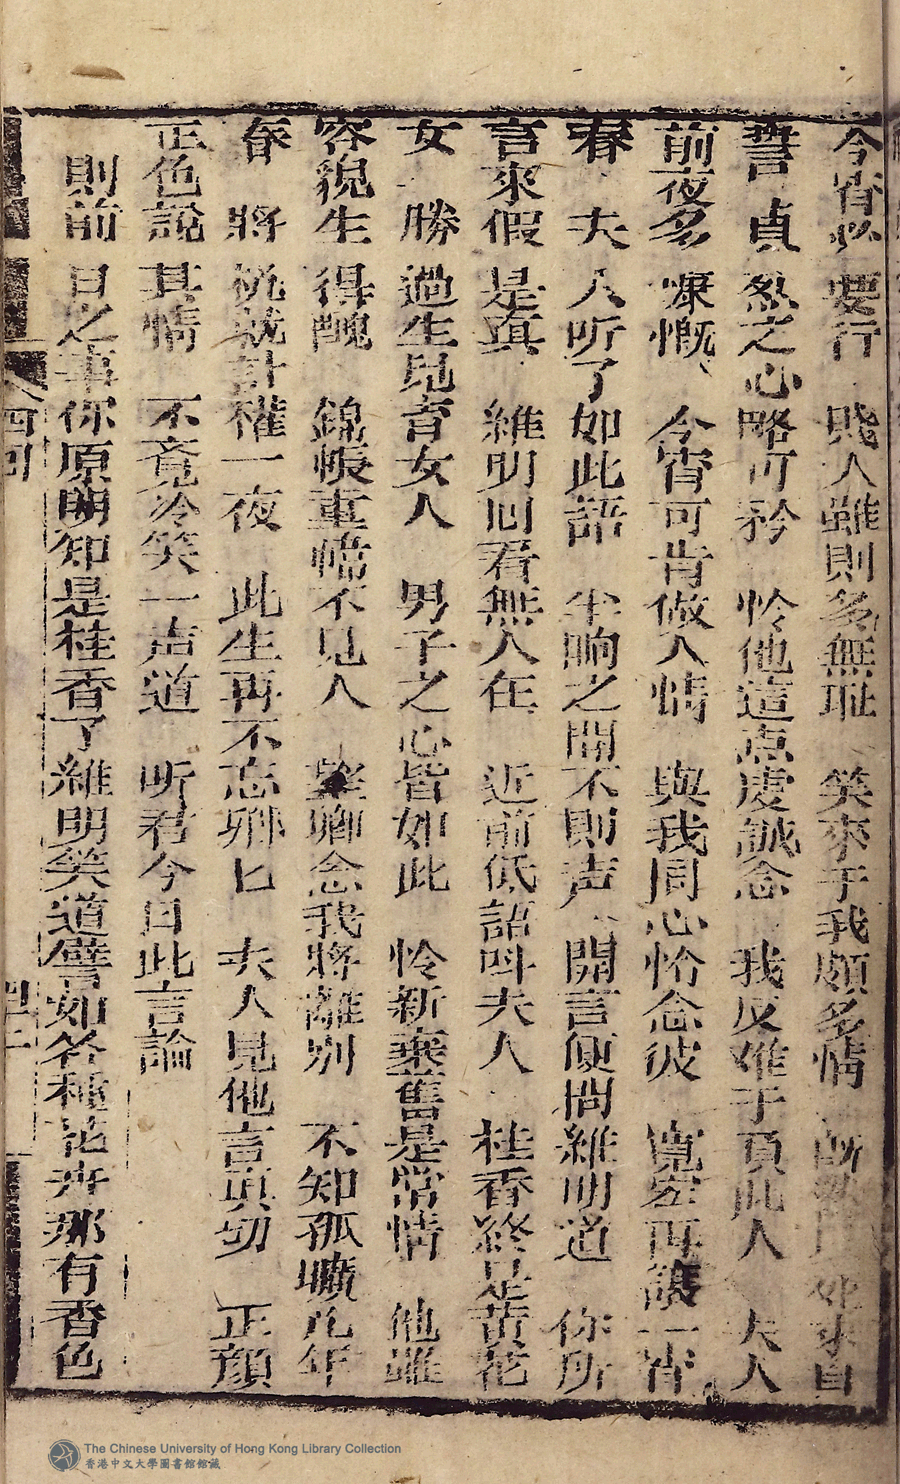 今宵必要行 賎人雖則多無耻 笑來于我頗多情 死來自
誓 貞烈之心略可矜 怜他這点虔誠念 我反难于頂此人 夫人
前夜多慷慨、今宵可肯做人情 與我同心怜念彼 寬宏再讓一宵
春 夫人听了如此語 半晌之間不則声 開言便問維明道 你所
言來假是真 維明回看無人在 近前低語呌夫人 桂香終是黄花
女 勝過生兒育女人 男子之心皆如此 怜新棄舊是常情 他雖
容貌生得醜 錦帳重幃不見人 望卿念我將離别 不知孤曠几年
春 將机就計權一夜 此生再不忘卿匕 夫人見他言真切 正顔
正色說其情 不竟冷笑一声道 听君今日此言論
則前日之事你原明知是桂香了維明笑道譬如各種花卉那有香色
四回
The Chinese University of Hong Kong Library Collection
香港中文大學圖書館館藏